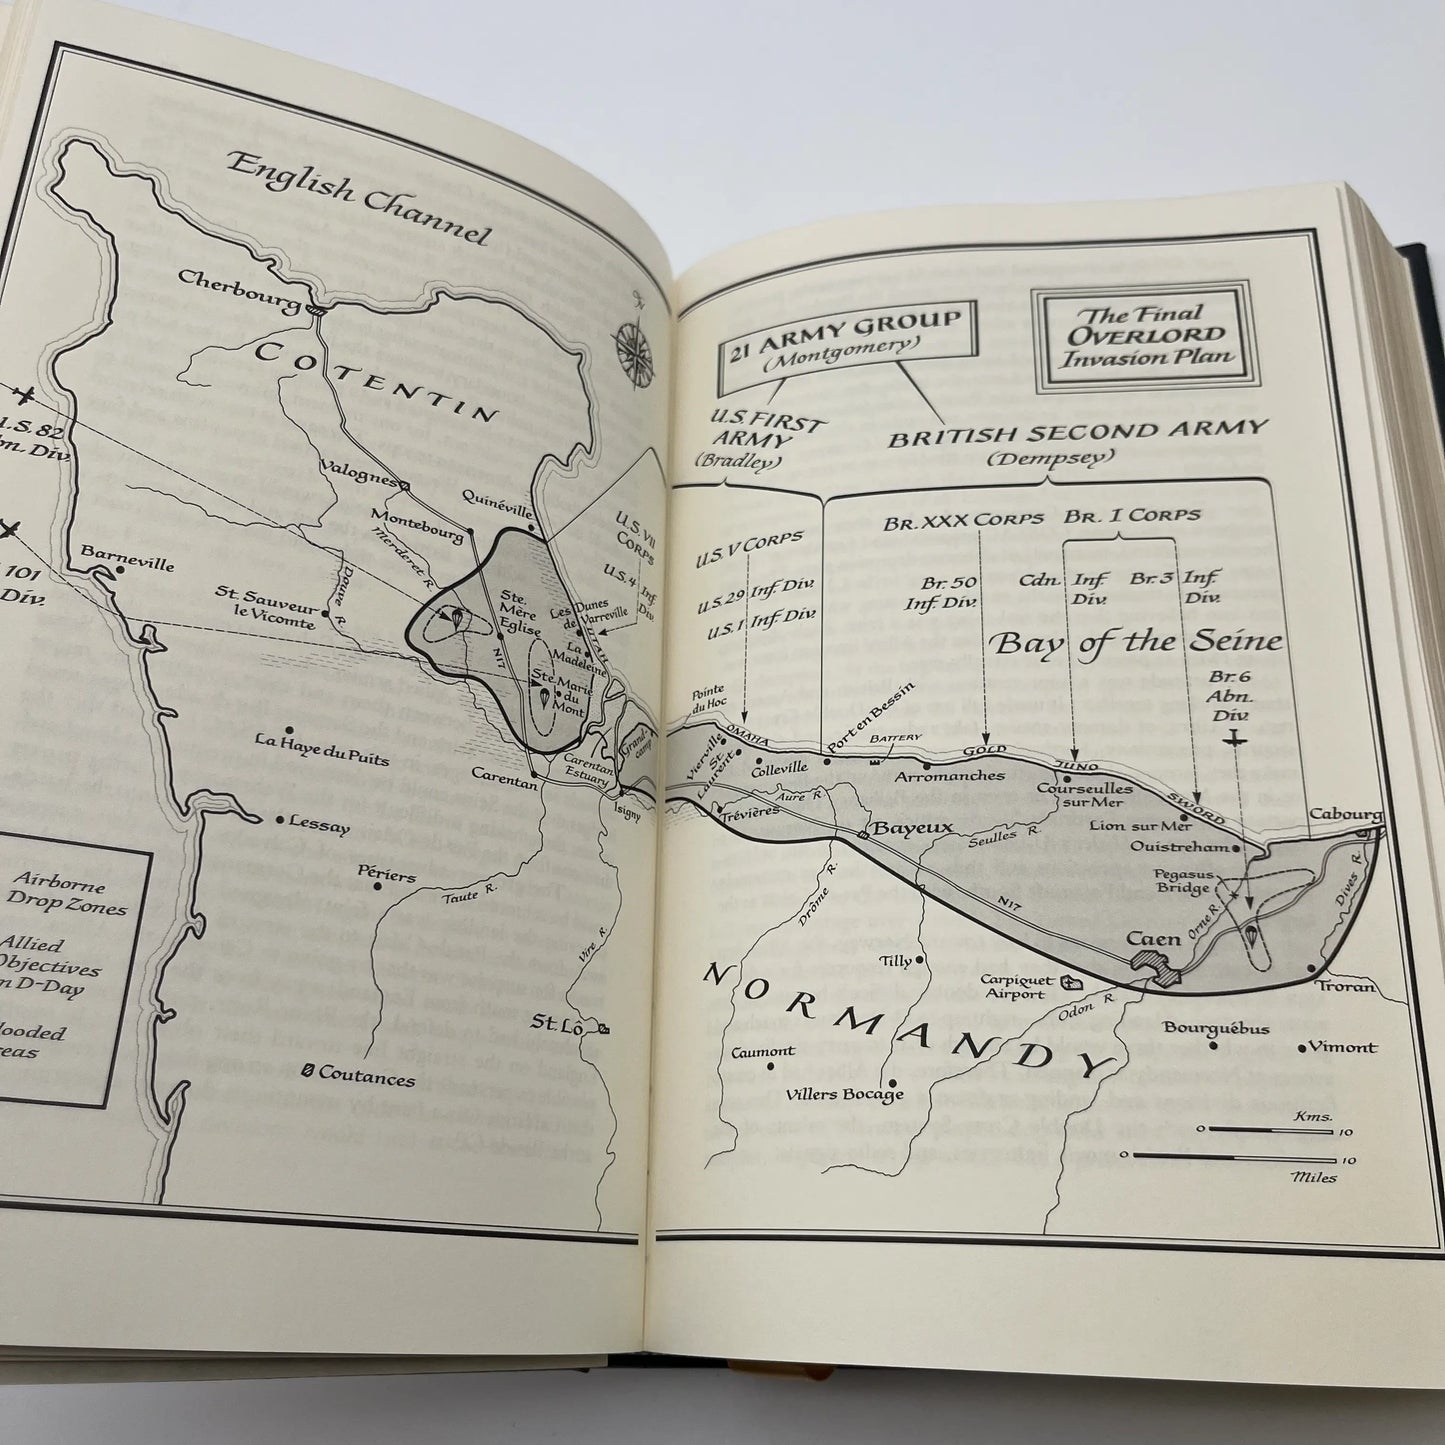 English Channel
Cherbourg
COTENTIN
U.S. 82
Abn. Div.
Valognes
Quinéville
Montebourg
Merderet R.
Barneville
101
Div.
St. Sauveur
le Vicomte
Douve R.
Ste.
Mère
Eglise
Les Dunes
de Varreville
UTAH
La
Madeleine
N17
Ste. Marie
du
Mont
U.S. VII
CORPS
U.S. 4 Inf.
Div.
La Haye du Puits
Carentan
Carentan
Estuary
Grand-
camp
Isigny
Lessay
Périers
Taute R.
Vire R.
St. Lô
Coutances
Airborne
Drop Zones
Allied
Objectives
on D-Day
Flooded
Areas
The Final
OVERLORD
Invasion Plan
21 ARMY GROUP
(Montgomery)
U.S. FIRST
ARMY
(Bradley)
BRITISH SECOND ARMY
(Dempsey)
U.S. V CORPS
U.S. 29 Inf. Div.
U.S. 1 Inf. Div.
BR. XXX CORPS
BR. I CORPS
Br. 50
Inf. Div.
Cdn. Inf.
Div.
Br. 3 Inf.
Div.
Bay of the Seine
Br. 6
Abn.
Div.
Pointe
du Hoc
OMAHA
Vierville
St.
Laurent
Colleville
Port en Bessin
BATTERY
Arromanches
GOLD
JUNO
Courseulles
sur Mer
SWORD
Lion sur Mer
Ouistreham
Cabourg
Trévières
Aure R.
Bayeux
Seulles R.
Pegasus
Bridge
Dives R.
Drôme R.
N17
Orne R.
Caen
Tilly
Carpiquet
Airport
Odon R.
Troran
NORMANDY
Caumont
Villers Bocage
Bourguébus
Vimont
Kms.
0 10
0 10
Miles